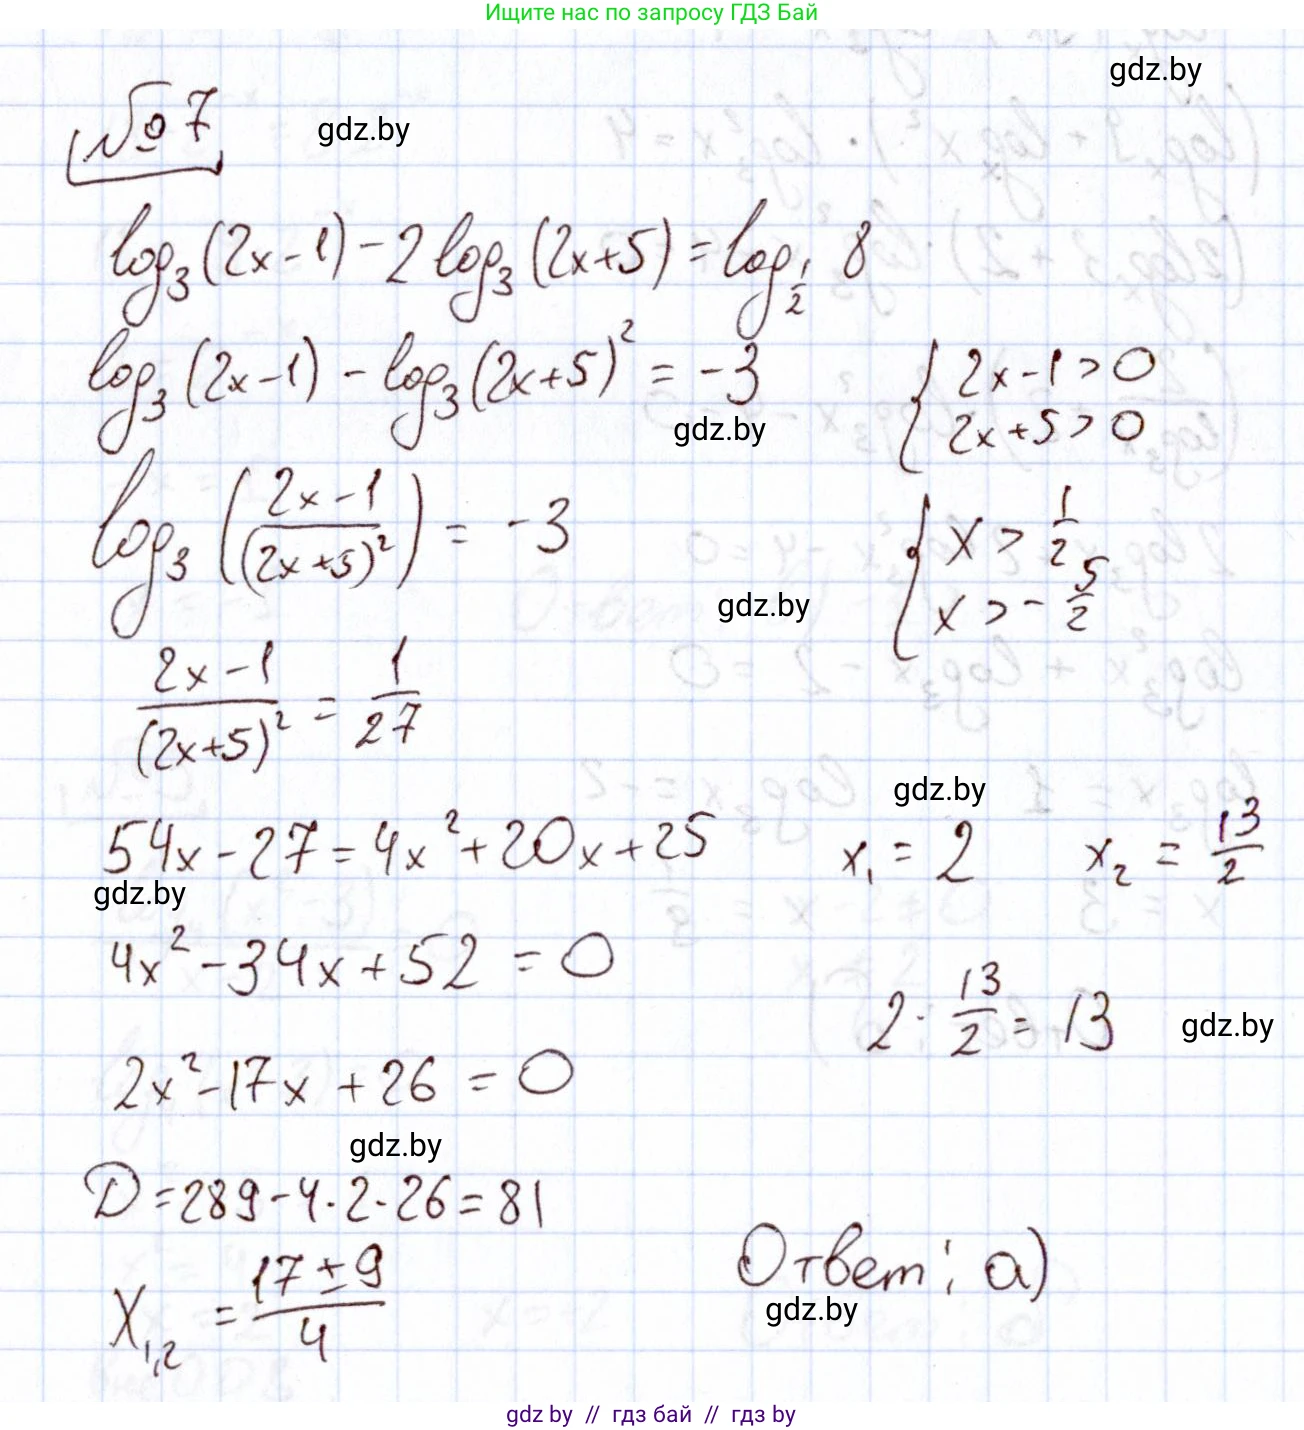 Ищите нас по запросу ГДЗ Бай
gdz.by
№ 7
gdz.by
log₃(2x-1) - 2log₃(2x+5) = log_{1/2} 8
log₃(2x-1) - log₃(2x+5)² = -3
gdz.by
{ 2x-1>0
2x+5>0
log₃((2x-1)/(2x+5)²) = -3
{ x > 1/2
x > -5/2
gdz.by
(2x-1)/(2x+5)² = 1/27
gdz.by
54x-27=4x²+20x+25
x₁ = 2 x₂ = 13/2
gdz.by
4x²-34x+52=0
2·13/2=13
gdz.by
2x²-17x+26=0
gdz.by
D=289-4·2·26=81
x₁,₂ = (17±9)/4
Ответ: а)
gdz.by
gdz by // гдз бай // гдз by